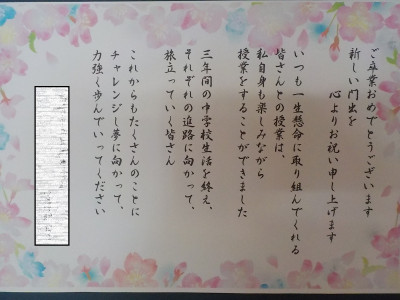 ご卒業おめでとうございます
新しい門出を
心よりお祝い申し上げます
いつも一生懸命に取り組んでくれる
皆さんとの授業は、
私自身も楽しみながら
授業をすることができました
三年間の中学校生活を終え、
それぞれの進路に向かって、
旅立っていく皆さん
これからもたくさんのことに
チャレンジし夢に向かって、
力強く歩んでいってください